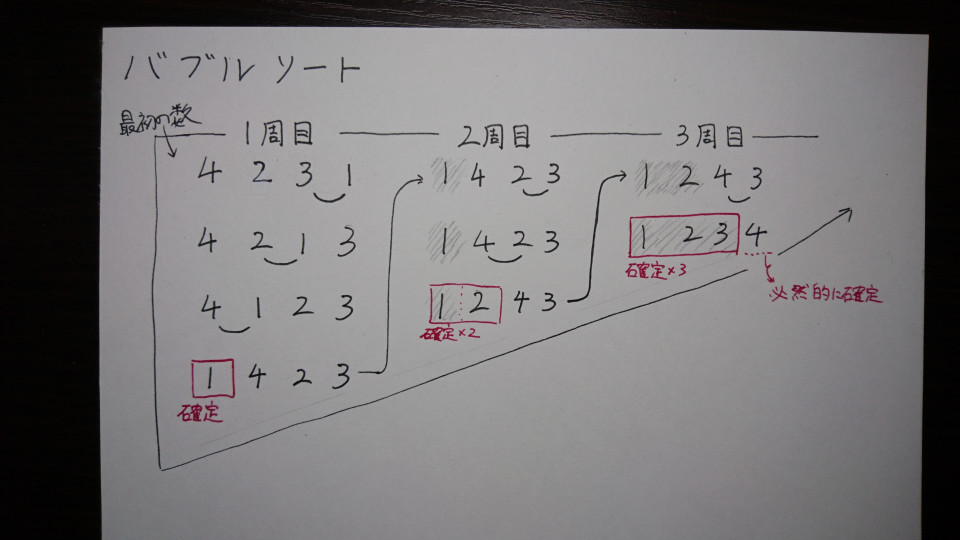 バブルソート
最初の数
1周目
4 2 3 1
4 2 1 3
4 1 2 3
1 4 2 3
確定
2周目
1 4 2 3
1 4 2 3
1 2 4 3
確定×2
3周目
1 2 4 3
1 2 3 4
確定×3
必然的に確定